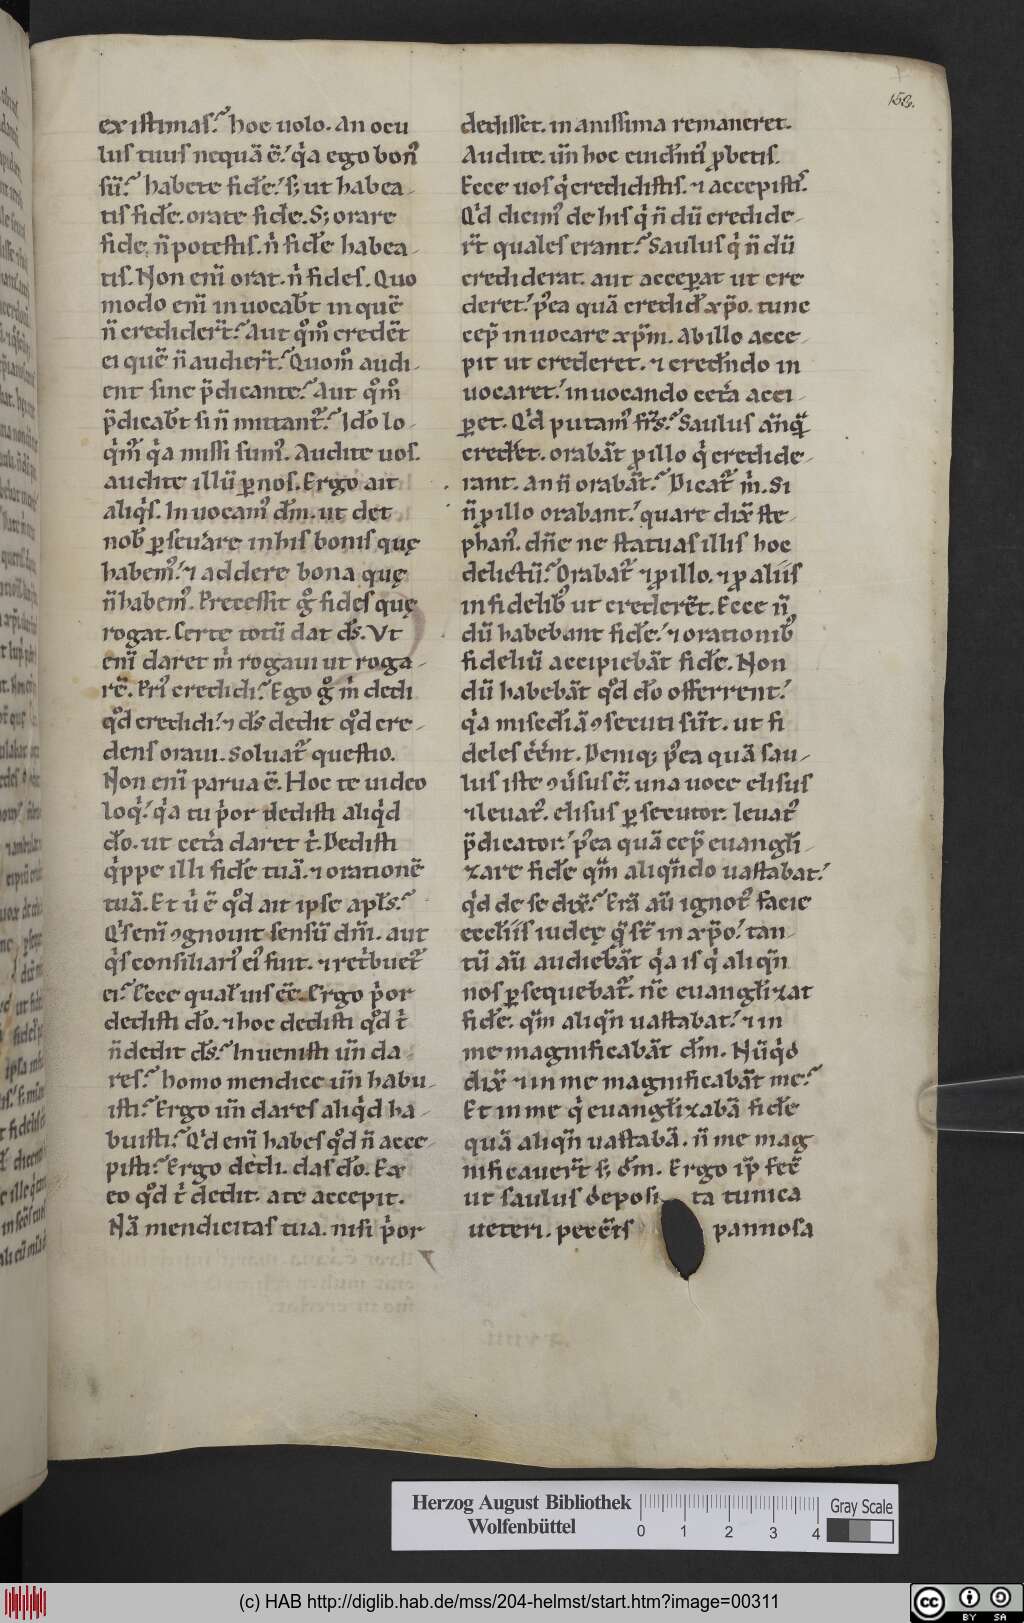 156.
existimas? hoc uolo. An ocu
lus tuus nequā ē? q̇a ego bon᷒
sū? habete fidē! s; ut habea-
tis fidē. orate fidē. S; orare
fide. n̄ potestis. ṅ fidē habea-
tis. Non enī orat. ṅ fides. Quo
modo enī inuocab̄t in quē
n̄ credider̄t? Aut q̊m̊ credēt
ei quē n̄ audier̄t? Quom̊ audi-
ent sine p̄dicante? Aut q̊m̊
p̄dicab̄t si n̄ mittant᷑? Id̄o lo-
q̇m᷑ q̇a missi sum᷒. Audite uos.
audite illū ꝑ nos. Ergo ait
aliq̇s. Inuocam᷒ dm̄. ut det
nob̄ ꝑseuare in his bonis quę
habem᷒! ⁊ addere bona quę
n̄ habem᷒. Precessit g̊ fides quę
rogat. Certe totū dat ds̄. Vt
enī daret ṁ rogaui ut roga-
rē. Pri᷒ credidi? Ego g̊ ṁ dedi
q̊d credidi! ⁊ ds̄ dedit q̊d cre-
dens oraui. Soluat᷑ questio.
Non enī parua ē. Hoc te uideo
loq̇! q̇a tu ṗor dedisti aliq̇d
dō. ut cetȧ daret ṫ. Dedisti
q̇ppe illi fidē tuā. ⁊ orationē
tuā. Et u̇ ē q̊d ait ipse apls̄?
Q̇s enī ꝯgnouit sensū dn̄i. aut
q̇s consiliari᷒ ei᷒ fuit. ⁊ retḃuet᷑
ei? Ecce qualuis eē. Ergo ṗor
dedisti dō. ⁊ hoc dedisti q̊d ṫ
n̄ dedit ds̄? Inuenisti un̄ da-
res? homo mendice un̄ habu-
isti? Ergo un̄ dares aliq̇d ha-
buisti? Q̇d enī habes q̊d n̄ acce-
pisti? Ergo dedi. das dō. Ex
eo q̊d ṫ dedit. a te accepit.
Nā mendicitas tua. nisi ṗor
dedisset. inanissima remaneret.
Audite. un̄ hoc euident᷒ ꝓbetis.
Ecce uos q̇ credidistis. ⁊ accepist᷒.
Q̇d dicim᷒ de his q̇ n̄ dū credide-
r̄t quales erant? Saulus q̇ n̄ dū
crediderat. aut acceꝑat ut cre
deret! p᷒ea quā credid̄ xp̄o. tunc
cep̄ inuocare xp̄m. Ab illo acce-
pit ut crederet. ⁊ credn̄do in
uocaret! inuocando cetȧ acci-
ꝑet. Q̇d putam᷒ fr̄s? Saulus an̄q̄
credēt. orabāt ꝓ illo q̇ credide-
rant. an n̄ orabāt? Dicat᷑ ṁ. Si
n̄ ꝓ illo orabant! quare dix̄ ste-
phan᷒. dn̄e ne statuas illis hoc
delictū? Orabat᷑ ⁊ ꝓ illo. ⁊ ꝓ aliis
infidelib᷒ ut crederēt. Ecce n̄
dū habebant fidē! ⁊ orationib᷒
fideliū accipiebāt fidē. Non
dū habebāt q̊d dō offerrent!
q̇a misediā ꝯsecuti sūt. ut fi
deles eēnt. Deniq; p᷒ea quā sau-
lus iste ꝯuersus ē. una uoce elisus
⁊ leuat᷒. elisus ꝑsecutor. leuat᷒
p̄dicator! p᷒ea quā cep̄ euangli-
zare fidē qm̄ aliqn̄do uastabat!
q̇d de se dix̄? Erā au̇ ignot᷒ facie
eccl̄iis iudeę q̄ st̄ in xp̄o! tan-
tū au̇ audiebāt q̇a is q̇ aliqn̄
nos ꝑsequebat᷑. nc̄ euanglizat
fidē. qm̄ aliqn̄ uastabat! ⁊ in
me magnificabāt dm̄. Nūq̇d
dix̄ ⁊ in me magnificabāt me?
Et in me q̇ euanglizabā fidē
quā aliqn̄ uastabā. n̄ me mag
nificauer̄t s; dm̄. Ergo ip̄ fec̄
ut saulus deposita tunica
ueteri. peccīs pannosa
Herzog August Bibliothek
Wolfenbüttel
0 1 2 3 4
Gray Scale
(c) HAB http://diglib.hab.de/mss/204-helmst/start.htm?image=00311
cc BY SA